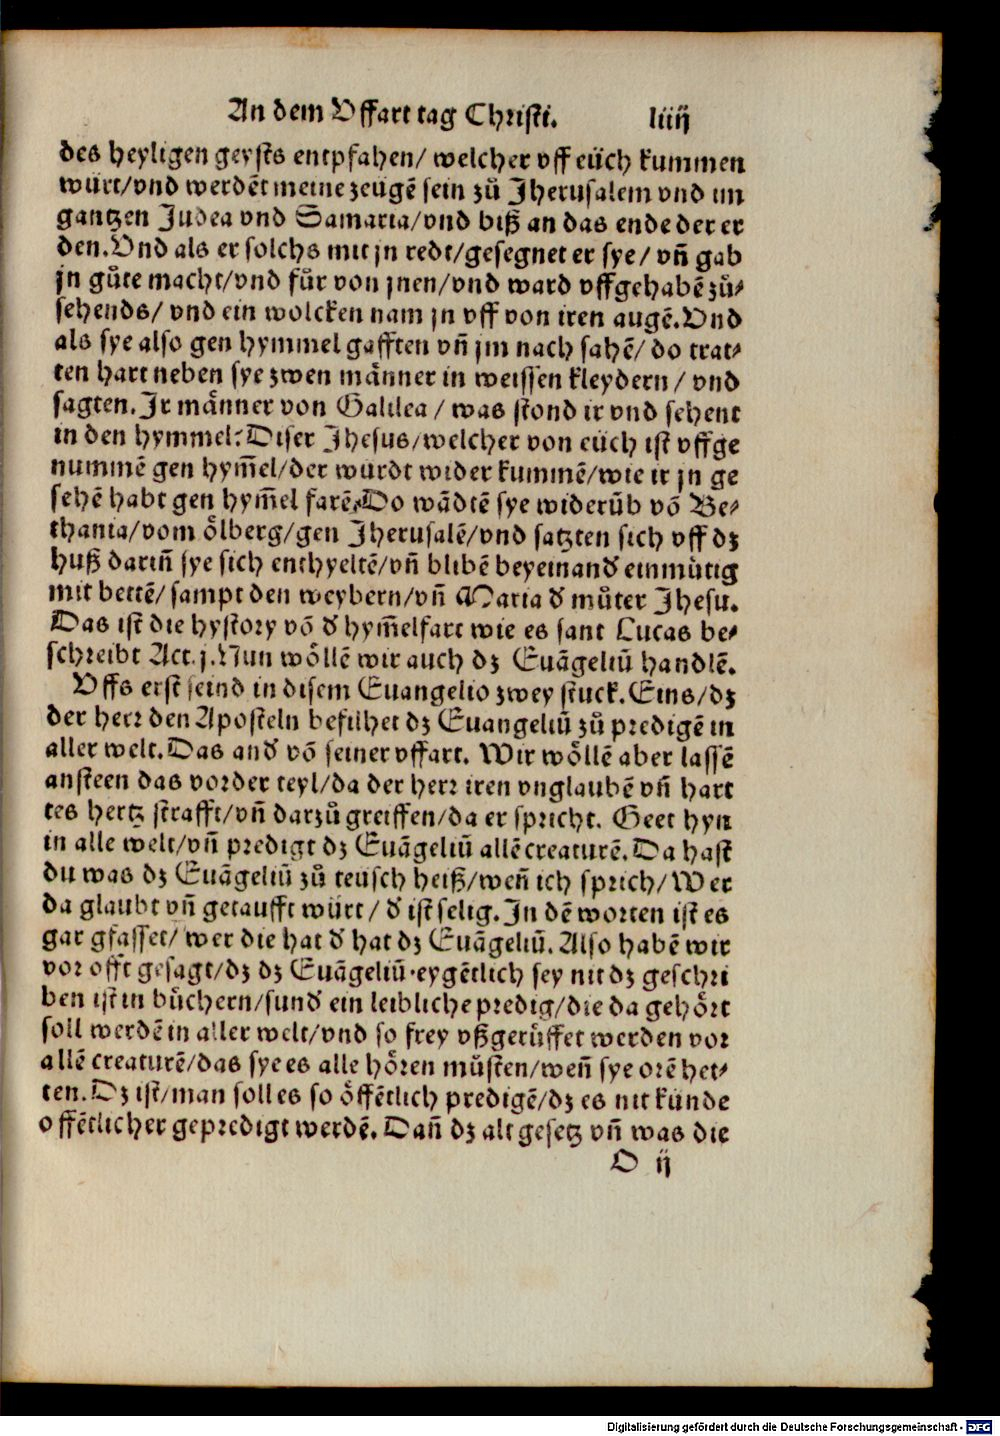 An dem Vffart tag Christi. liiij
des heyligen geysts entpfahen/ welcher vff eüch kummen
würt/vnd werdēt meine zeügē sein zů Jherusalem vnd im
gantzen Judea vnd Samaria/vnd biß an das ende der er
den.Vnd als er solchs mit jn redt/gesegnet er sye/ vn̄ gab
jn gůte macht/vnd fůr von jnen/vnd ward vffgehabē zů⸗
sehends/ vnd ein wolcken nam jn vff von iren augē.Vnd
als sye also gen hymmel gafften vn̄ jm nach sahē/ do trat⸗
ten hart neben sye zwen männer in weissen kleydern / vnd
sagten.Jr männer von Galilea / was stond ir vnd sehent
in den hymmel?Diser Jhesus/welcher von eüch ist vffge
nummē gen hym̄el/der würdt wider kummē/wie ir jn ge
sehē habt gen hym̄el farē.Do wādtē sye widerūb vō Be⸗
thania/vom ölberg/gen Jherusalē/vnd satzten sich vff dz
huß darin̄ sye sich enthyeltē/vn̄ blibē beyeinand̕ einmütig
mit bettē/ sampt den weybern/vn̄ Maria d̕ můter Jhesu.
Das ist die hystory vō d̕ hym̄elfart wie es sant Lucas be⸗
schreibt Act.j.Nun wöllē wir auch dz Euāgeliū handlē.
Vffs erst seind in disem Euangelio zwey stuck.Eins/dz
der herr den Aposteln befilhet dz Euangeliū zů predigē in
aller welt.Das and̕ vō seiner vffart. Wir wöllē aber lassē
ansteen das vorder teyl/da der herr iren vnglaubē vn̄ hart
tes hertz strafft/vn̄ darzů greiffen/da er spricht. Geet hyn
in alle welt/vn̄ predigt dz Euāgeliū allē creaturē.Da hast
du was dz Euāgeliū zů teusch heiß/wen̄ ich sprich/Wer
da glaubt vn̄ getaufft würt / d̕ ist selig.Jn dē worten ist es
gar gfasset/ wer die hat d̕ hat dz Euāgeliū. Also habē wir
vor offt gesagt/dz dz Euāgeliū eygētlich sey nit dz geschri
ben ist in büchern/sund̕ ein leibliche predig/die da gehört
soll werdē in aller welt/vnd so frey vßgerüffet werden vor
allē creaturē/das sye es alle hören müsten/wen̄ sye orē het⸗
ten.Dz ist/man soll es so öffētlich predigē/dz es nit künde
offētlicher gepredigt werdē. Dan̄ dz alt gesetz vn̄ was die
O ij
Digitalisierung gefördert durch die Deutsche Forschungsgemeinschaft - DFG